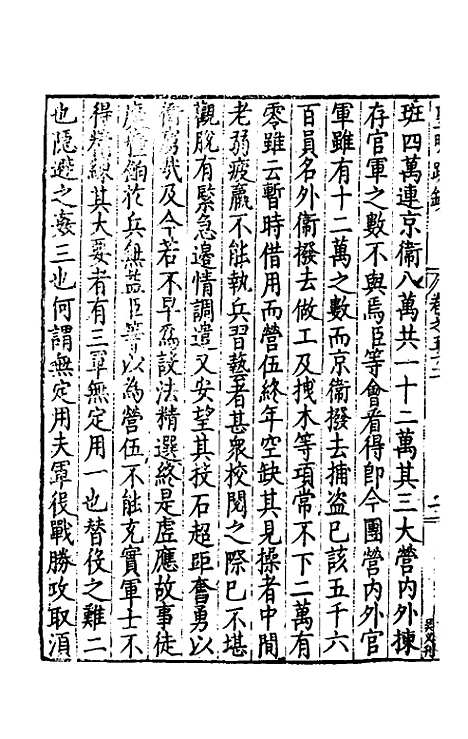 班四萬連京衛八萬共一十二萬其三大營内外揀
存官軍之數不與焉臣等會看得即今團營内外官
軍雖有十二萬之數而京衛撥去捕盗已該五千六
百員名外衛撥去做工及拽木等項常不下二萬有
零雖云暫時借用而營伍終年空缺其見操者中間
老弱疲羸不能執兵習藝者甚衆校閲之際已不堪
觀脱有緊急邊情調遣又安望其投石超距奮勇以
禦寇哉及今若不早爲設法精選終是虚應故事徒
於兵無益臣等以為營伍不能充實軍士不
得精練其大要者有三軍無定用一也替役之難二
也隱避之姦三也何謂無定用夫軍役戰勝攻取湏